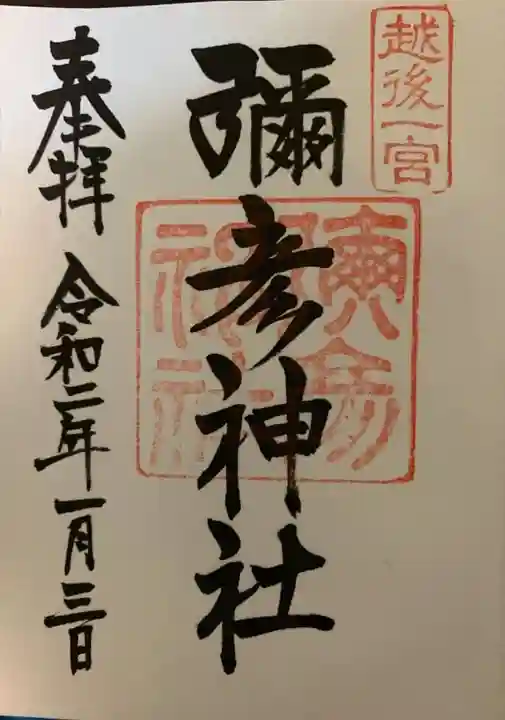 越後一宮
彌彦神社
奉拝 令和二年一月三日